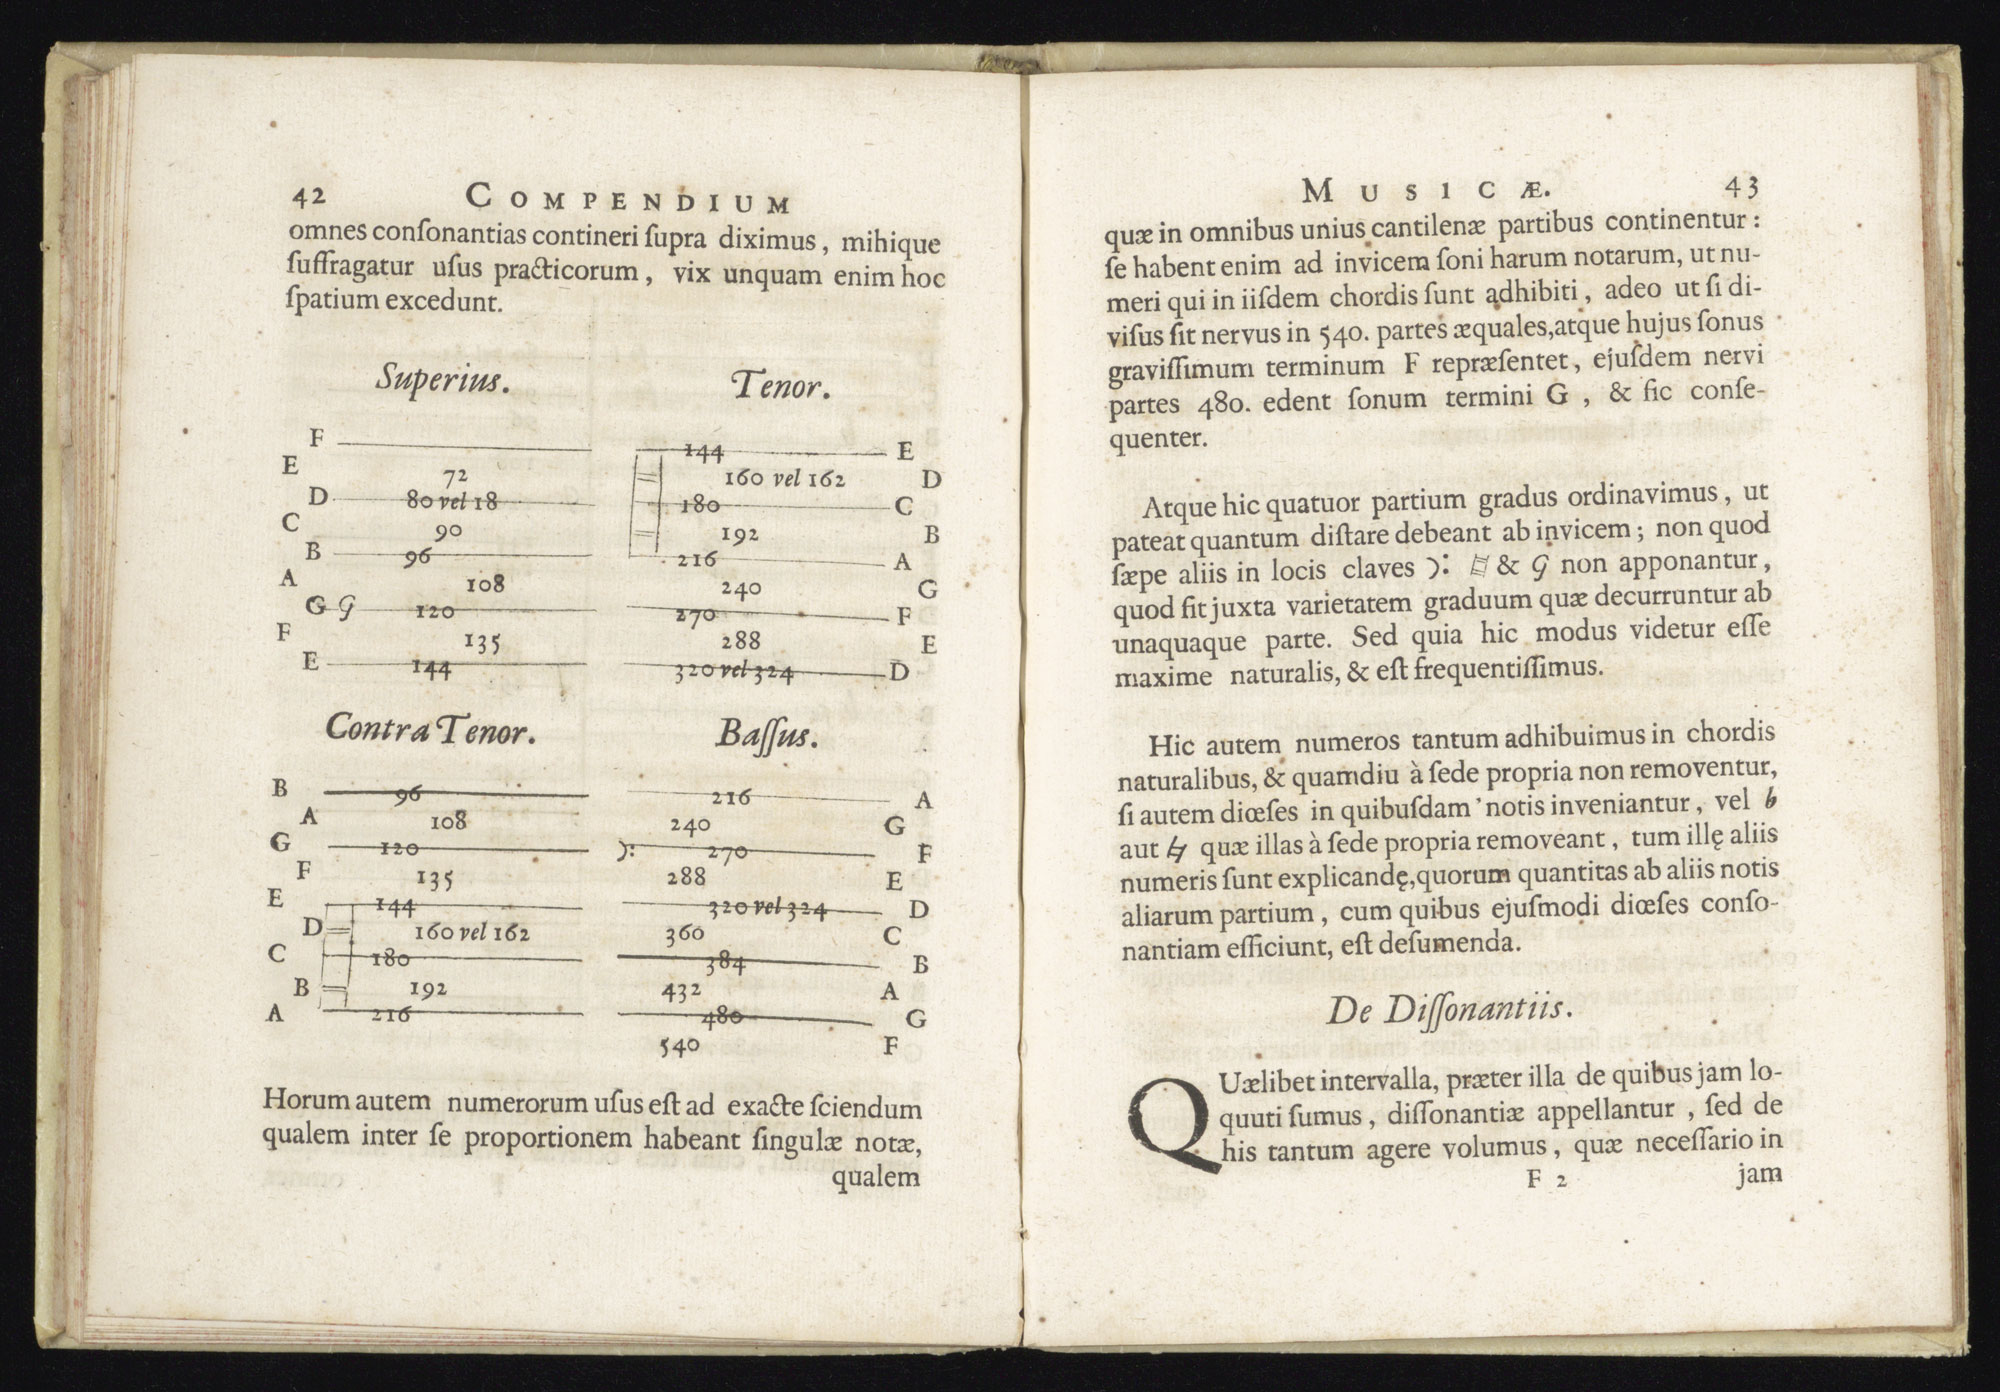 42 COMPENDIUM
omnes conſonantias contineri ſupra diximus, mihique
ſuffragatur uſus practicorum, vix unquam enim hoc
ſpatium excedunt.
Superius.
F
E 72
D 80 vel 18
C 90
B 96
A 108
G G 120
F 135
E 144
Tenor.
144 E
160 vel 162 D
180 C
192 B
216 A
240 G
270 F
288 E
320 vel 324 D
Contra Tenor.
B 96
A 108
G 120
F 135
E 144
D 160 vel 162
C 180
B 192
A 216
Baſſus.
216 A
240 G
270 F
288 E
320 vel 324 D
360 C
384 B
432 A
480 G
540 F
Horum autem numerorum uſus eſt ad exacte ſciendum
qualem inter ſe proportionem habeant ſingulæ notæ,
qualem
MUSICÆ. 43
quæ in omnibus unius cantilenæ partibus continentur:
ſe habent enim ad invicem ſoni harum notarum, ut nu-
meri qui in iiſdem chordis ſunt adhibiti, adeo ut ſi di-
viſus ſit nervus in 540. partes æquales, atque hujus ſonus
graviſſimum terminum F repræſentet, ejuſdem nervi
partes 480. edent ſonum termini G, & ſic conſe-
quenter.
Atque hic quatuor partium gradus ordinavimus, ut
pateat quantum diſtare debeant ab invicem; non quod
ſæpe aliis in locis claves & G non apponantur,
quod fit juxta varietatem graduum quæ decurruntur ab
unaquaque parte. Sed quia hic modus videtur eſſe
maxime naturalis, & eſt frequentiſſimus.
Hic autem numeros tantum adhibuimus in chordis
naturalibus, & quamdiu à ſede propria non removentur,
ſi autem diœſes in quibuſdam notis inveniantur, vel ♭
aut ♮ quæ illas à ſede propria removeant, tum illę aliis
numeris ſunt explicandę, quorum quantitas ab aliis notis
aliarum partium, cum quibus ejuſmodi diœſes conſo-
nantiam efficiunt, eſt deſumenda.
De Diſſonantiis.
QUælibet intervalla, præter illa de quibus jam lo-
quuti ſumus, diſſonantiæ appellantur, ſed de
his tantum agere volumus, quæ neceſſario in
F 2 jam